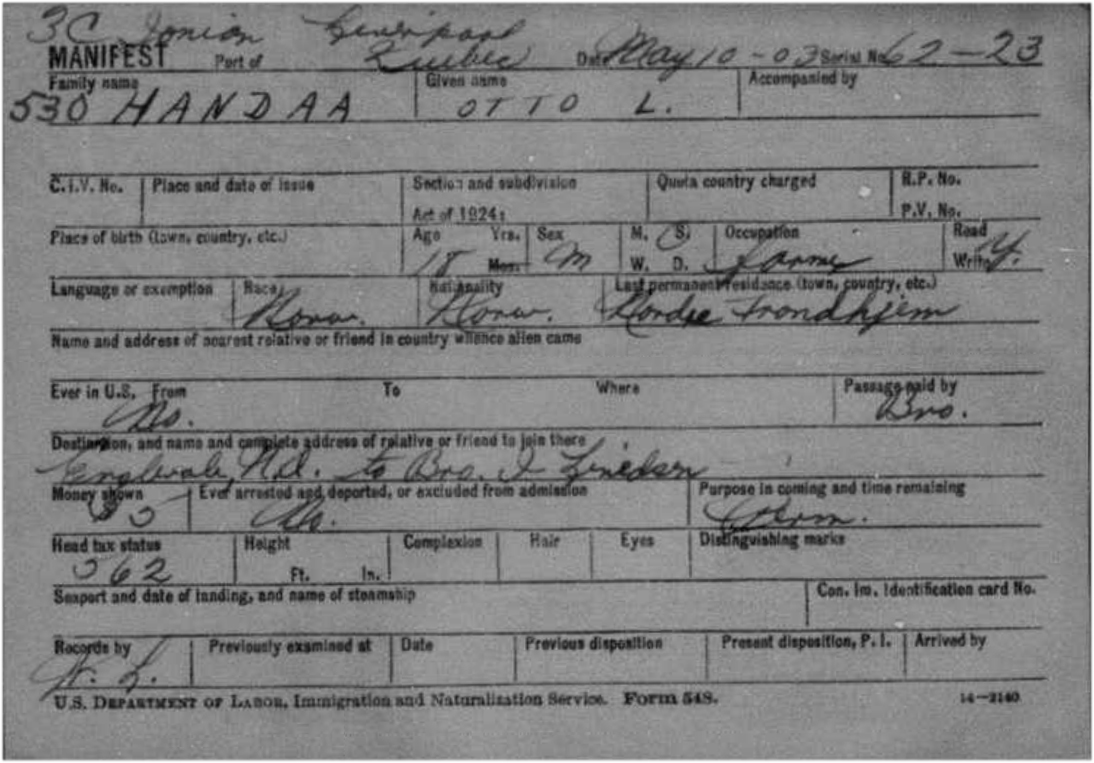 3C Ionian Liverpool
MANIFEST Port of Quebec Date May 10-03 Serial No. 62-23
Family name Given name Accompanied by
530 HANDAA OTTO L.
C.I.V. No. Place and date of issue Section and subdivision Quota country charged R.P. No.
Act of 1924: P.V. No.
Place of birth (town, country, etc.) Age Yrs. Sex M. S. Occupation Read
18 Mos. M W. D. Farmer Write Y.
Language or exemption Race Nationality Last permanent residence (town, country, etc.)
Norw. Norw. Trondhjem
Name and address of nearest relative or friend in country whence alien came
Ever in U.S. From To Where Passage paid by
No. Bro.
Destination, and name and complete address of relative or friend to join there
Englevale, N.d. to Bro. I
Money shown Ever arrested and deported, or excluded from admission Purpose in coming and time remaining
$5 No. Perm.
Head tax status Height Complexion Hair Eyes Distinguishing marks
562 Ft. In.
Seaport and date of landing, and name of steamship Con. Im. Identification card No.
Records by Previously examined at Date Previous disposition Present disposition, P. I. Arrived by
U.S. DEPARTMENT OF LABOR, Immigration and Naturalization Service. Form 548. 14—2140